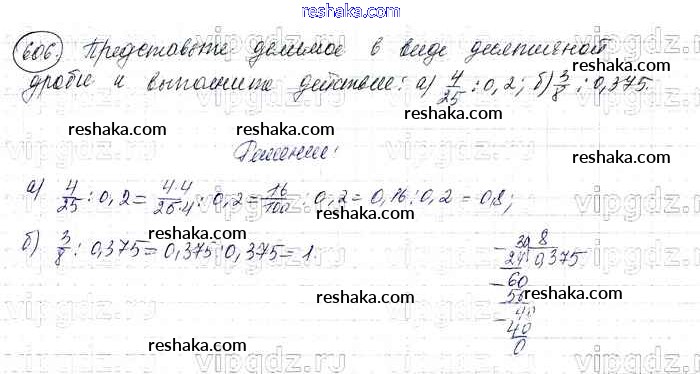 reshaka.com
606. Представьте делимое в виде десятичной
дроби и выполните действие: а) 4/25 : 0,2; б) 3/8 : 0,375.
reshaka.com reshaka.com reshaka.com
Решение:
reshaka.com reshaka.com
а) 4/25 : 0,2 = 4·4/25·4 : 0,2 = 16/100 : 0,2 = 0,16 : 0,2 = 0,8;
б) 3/8 : 0,375 = 0,375 : 0,375 = 1.
30 | 8
- 24 | 0,375
- 60
56
- 40
40
0
reshaka.com reshaka.com
reshaka.com reshaka.com
vipgdz.ru